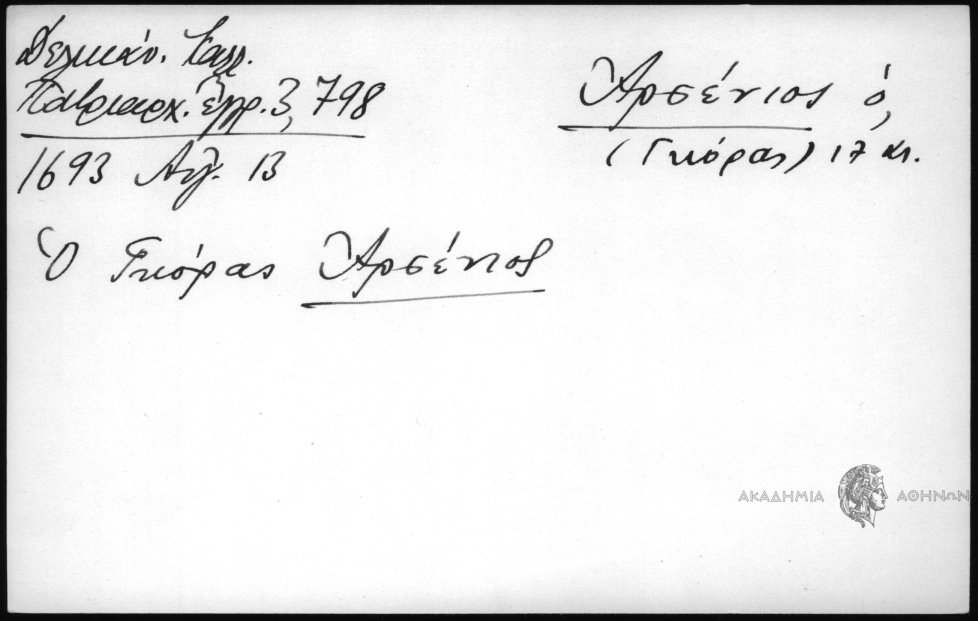 Δελικάν. Καλλ.
Πατριαρχ. ἔγγρ. 3, 798
1693 Αὐγ. 13
Ἀρσένιος ὁ,
(Γκόρας) 17 αἰ.
Ὁ Γκόρας Ἀρσένιος
ΑΚΑΔΗΜΙΑ ΑΘΗΝΩΝ